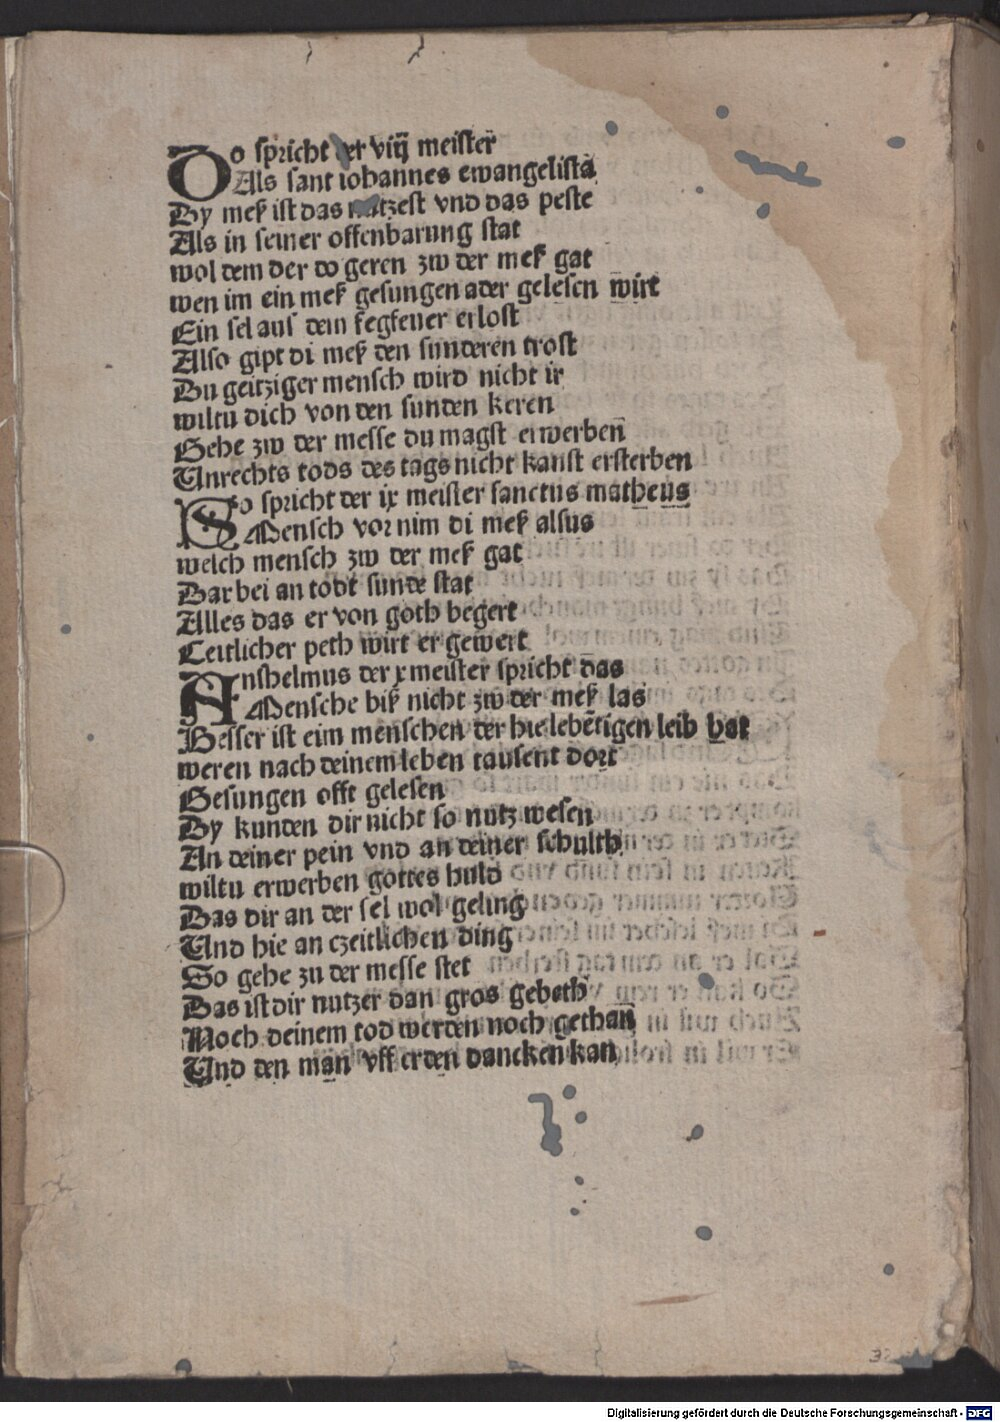 Do spricht der viij meister
Als sant iohannes ewangelista
Dy meß ist das nutzest vnd das peste
Als in seiner offenbarung stat
wol dem der do geren zw der meß gat
wen im ein meß gesungen ader gelesen wirt
Ein sel aus dem fegfeuer erlost
Also gipt di meß den sunderen trost
Du geitziger mensch wird nicht ir
wiltu dich von den sunden keren
Gehe zw der messe du magst erwerben
Unrechts tods des tags nicht kanst ersterben
So spricht der ix meister sanctus matheus
Mensch vornim di meß alsus
welch mensch zw der meß gat
Dar bei an todt sunde stat
Alles das er von goth begert
Ceitlicher peth wirt er gewert
Anshelmus der x meister spricht das
Mensche biß nicht zw der meß las
Besser ist eim menschen der hie lebētigen leib hat
weren nach deinem leben tausent dort
Gesungen offt gelesen
Dy kunden dir nicht so nutz wesen
An deiner pein vnd an deiner schulth
wiltu erwerben gottes huld
Das dir an der sel wol geling
Und hie an czeitlichen ding
So gehe zu der messe stet
Das ist dir nutzer dan gros gebeth
Noch deinem tod werden noch gethan
Und den man vff erden dancken kan
Digitalisierung gefördert durch die Deutsche Forschungsgemeinschaft - DFG